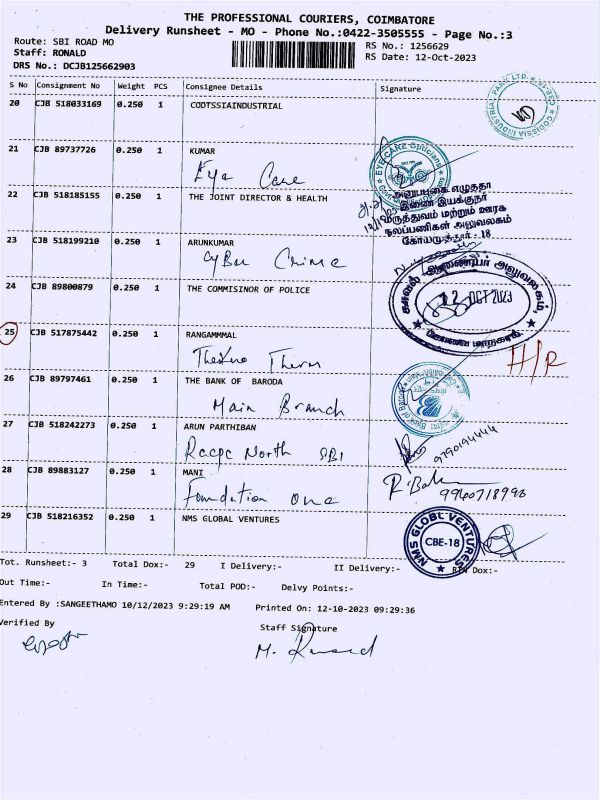 THE PROFESSIONAL COURIERS, COIMBATORE
Delivery Runsheet - MO - Phone No.:0422-3505555 - Page No.:3
Route: SBI ROAD MO
RS No.: 1256629
Staff: RONALD
RS Date: 12-Oct-2023
DRS No.: DCJB125662903
S No Consignment No Weight PCS Consignee Details Signature
20 CJB 518033169 0.250 1 CODTSSIAINDUSTRIAL
CODISSIA INDUSTRIAL PARK LTD.
21 CJB 89737726 0.250 1 KUMAR
Eye Care
EYE CARE Opticians
22 CJB 518185155 0.250 1 THE JOINT DIRECTOR & HEALTH
அனுப்புகை எழுத்தர்
இணை இயக்குநர்
மருத்துவம் மற்றும் ஊரக
நலப்பணிகள் அலுவலகம்
கோயமுத்தூர் - 18
23 CJB 518199210 0.250 1 ARUNKUMAR
Cyber Crime
24 CJB 89800879 0.250 1 THE COMMISINOR OF POLICE
காவல் ஆணையர் அலுவலகம்,
12 OCT 2023
கோவை மாநகரம்.
25 CJB 517875442 0.250 1 RANGAMMMAL
H/R
26 CJB 89797461 0.250 1 THE BANK OF BARODA
Main Branch
27 CJB 518242273 0.250 1 ARUN PARTHIBAN
Racpc North SBI
9790194444
28 CJB 89883127 0.250 1 MANI
Foundation One
29 CJB 518216352 0.250 1 NMS GLOBAL VENTURES
NMS GLOBL VENTURES
CBE-18
Tot. Runsheet:- 3 Total Dox:- 29 I Delivery:- II Delivery:- RTN Dox:-
Out Time:- In Time:- Total POD:- Delvy Points:-
Entered By :SANGEETHAMO 10/12/2023 9:29:19 AM Printed On: 12-10-2023 09:29:36
Verified By
Staff Signature